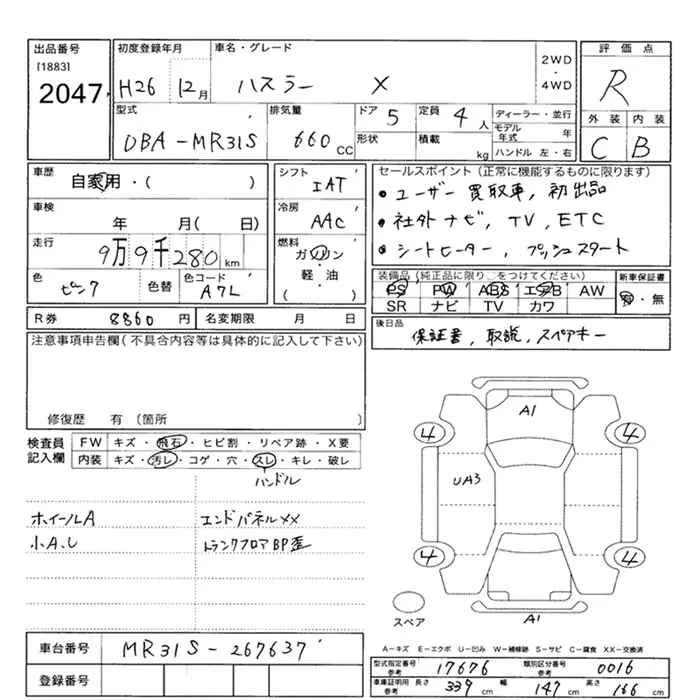 出品番号 [1883] 2047
初度登録年月 H26 12月
車名・グレード ハスラー X
2WD・4WD
評価点 R
外装 C 内装 B
型式 DBA-MR31S
排気量 660 CC
ドア 5
形状
定員 4人
積載 kg
ディーラー・並行
モデル年式 年
ハンドル 左・右
車歴 自家用・( )
車検 年 月( 日)
走行 9万9千280km
色 ピンク 色替 色コード A7L
シフト IAT
冷房 AAC
燃料 ガソリン・軽・油 ( )
セールスポイント(正常に機能するものに限ります)
・ユーザー買取車, 初出品
・社外ナビ, TV, ETC
・シートヒーター, プッシュスタート
装備品(純正品に限り○をつけてください)
PS PW ABS エアB AW
SR ナビ TV カワ
新車保証書 有・無
R券 8860円 名変期限 月 日
後日品 保証書, 取説, スペアキー
注意事項申告欄(不具合内容等は具体的に記入して下さい)
修復歴 有 〔箇所 〕
検査員記入欄
FW キズ・飛石・ヒビ割・リペア跡・X要
内装 キズ・汚レ・コゲ・穴・スレ・キレ・破レ
ハンドル
ホイールA エンドパネルXX
小A.U トランクフロアBP歪
A1
4 4
UA3
4 4
A1
スペア
A=キズ E=エクボ U=凹み W=補修跡 S=サビ C=腐食 XX=交換済
車台番号 MR31S-267637
登録番号
型式指定番号 参考 17676 類別区分番号 参考 0016
車庫証明用 参考 長さ 339cm 幅 147cm 高さ 166cm